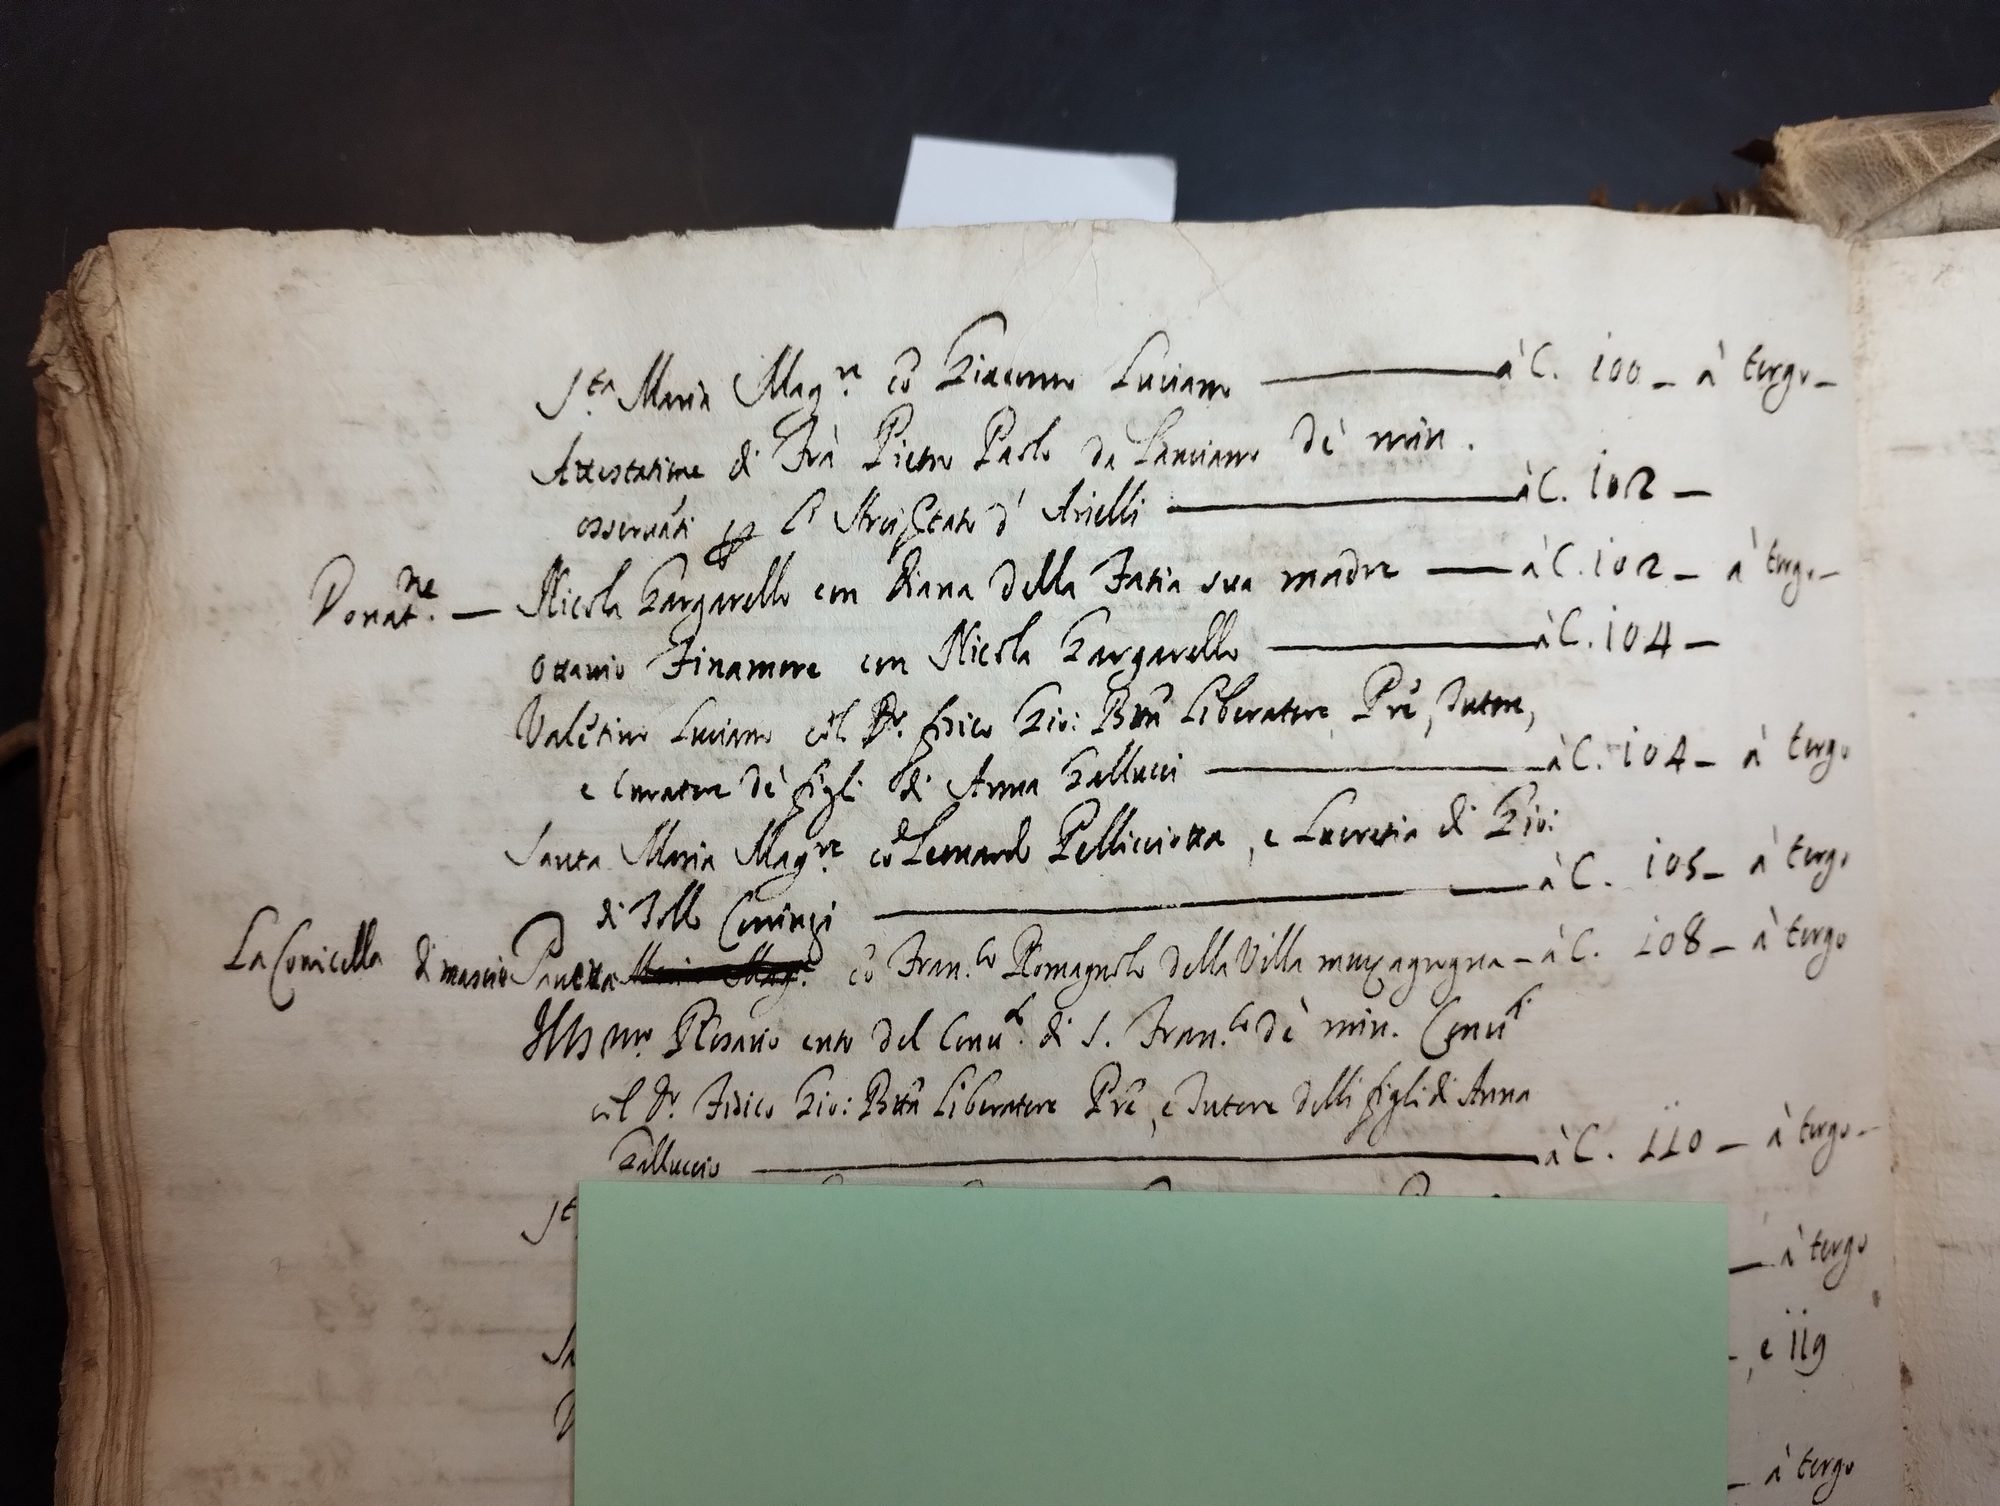 S.ta Maria Mag.re cõ Giacomo Luciano à C. 100 – à tergo –
Attestatione di Frà Pietro Paolo da Lanciano dè min.
osseruāti l'Arcip̄tato d'Arielli à C. 102 –
Donat.ne — Nicola Gargarello con Diana della Fatia sua madre — à C. 102 – à tergo –
Ottavio Finamore con Nicola Gargarello à C. 104 –
Valẽtino Luciano cõl D.r fisico Gio: Btt̃a Liberatore Prẽ, Tutore,
e Curatore dè figli di Anna Gallucci à C. 104 – à tergo
Santa Maria Mag.re cõ Leonardo Pellicciotta, e Lucretia di Gio:
di Tollo Coniugi à C. 105 – à tergo
La Conicella di mascio Panetta cõ Fran.co Romagnolo della Villa muczagrogna – à C. 108 – à tergo
Rosario ento del Conu.to di S. Fran.co dè min. Conu.li
cõl D.r Fisico Gio: Btt̃a Liberatore Prẽ, e Tutore delli figli di Anna
Galluccio à C. 110 – à tergo –
S.t
– à tergo
Sa – , e 119
– à tergo